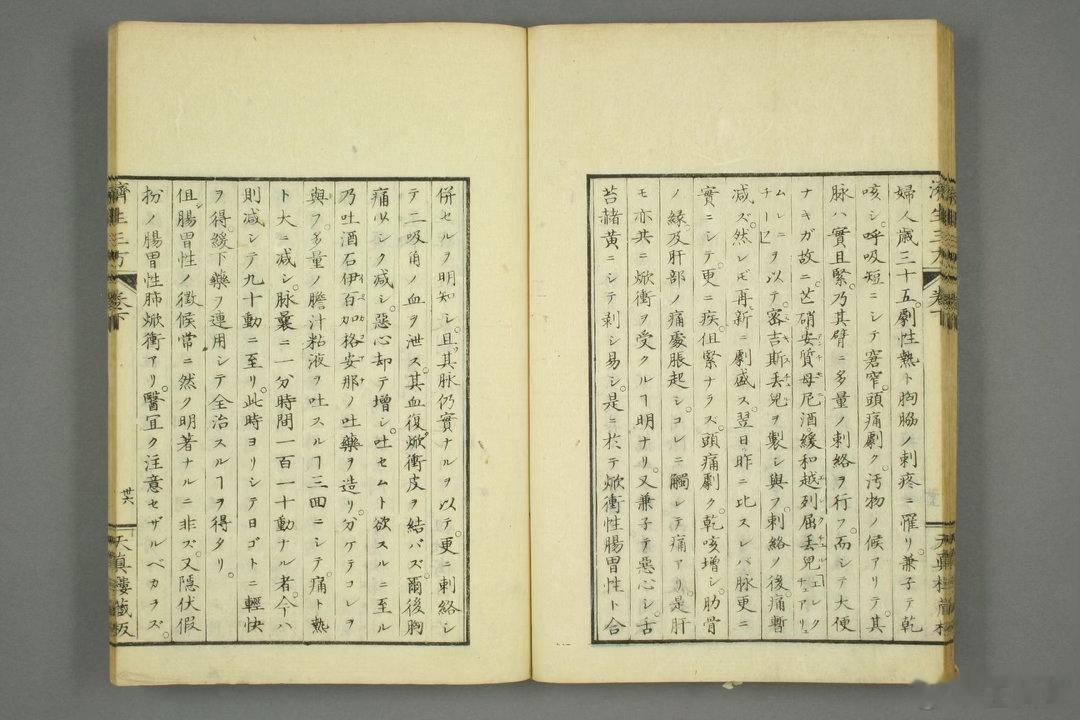 婦人歳三十五。劇性熱ト胸脇ノ刺疼ニ罹リ。兼子テ乾
咳シ。呼吸短ニシテ窘窄。頭痛劇ク。汚物ノ候アリテ。其
脉ハ實且緊。乃其臂ニ多量ノ刺絡ヲ行フ。而シテ大便
ナキガ故ニ。芒硝安質母尼酒。緩和越列屈丢兒
ムニヲ以テ。審吉斯丢兒ヲ製シ與フ。刺絡ノ後痛暫
減ズ。然レ𪜈再新ニ劇盛ス。翌日。昨ニ比スレバ脉更ニ
實ニシテ。更ニ疾。但緊ナラス。頭痛劇ク。乾咳增シ。肋骨
ノ緣。及肝部ノ痛處脹起シ。コレニ觸レテ痛アリ。是肝
モ亦共ニ焮衝ヲ受クルヿ明ナリ。又兼子テ惡心シ。舌
苔赭黄ニシテ剥シ易シ。是ニ於テ焮衝性腸胃性ト合
併セルヲ明知シ。且其脉仍實ナルヲ以テ。更ニ刺絡シ
テ二吸角ノ血ヲ泄ス。其血復焮衝皮ヲ結バズ。爾後胸
痛少シク減シ。惡心却テ增シ。吐セムト欲スルニ至ル
乃吐酒石伊百加格安那ノ吐藥ヲ造リ。分ケテコレヲ
與フ。多量ノ膽汁粘液ヲ吐スルヿ三四ニシテ。痛ト熱
ト大ニ減シ。脉曩ニ一分時間一百一十動ナル者。今ハ
則減シテ九十動ニ至リ。此時ヨリシテ日ゴトニ輕快
ヲ得。緩下藥ヲ連用シテ全治スルヿヲ得タリ。
但腸胃性ノ徴候常ニ然ク明著ナルニ非ズ。又隱伏假
扮ノ腸胃性肺焮衝アリ。醫宜ク注意セザルベカラズ。
濟生三方
卷下
廿六
天眞樓藏板